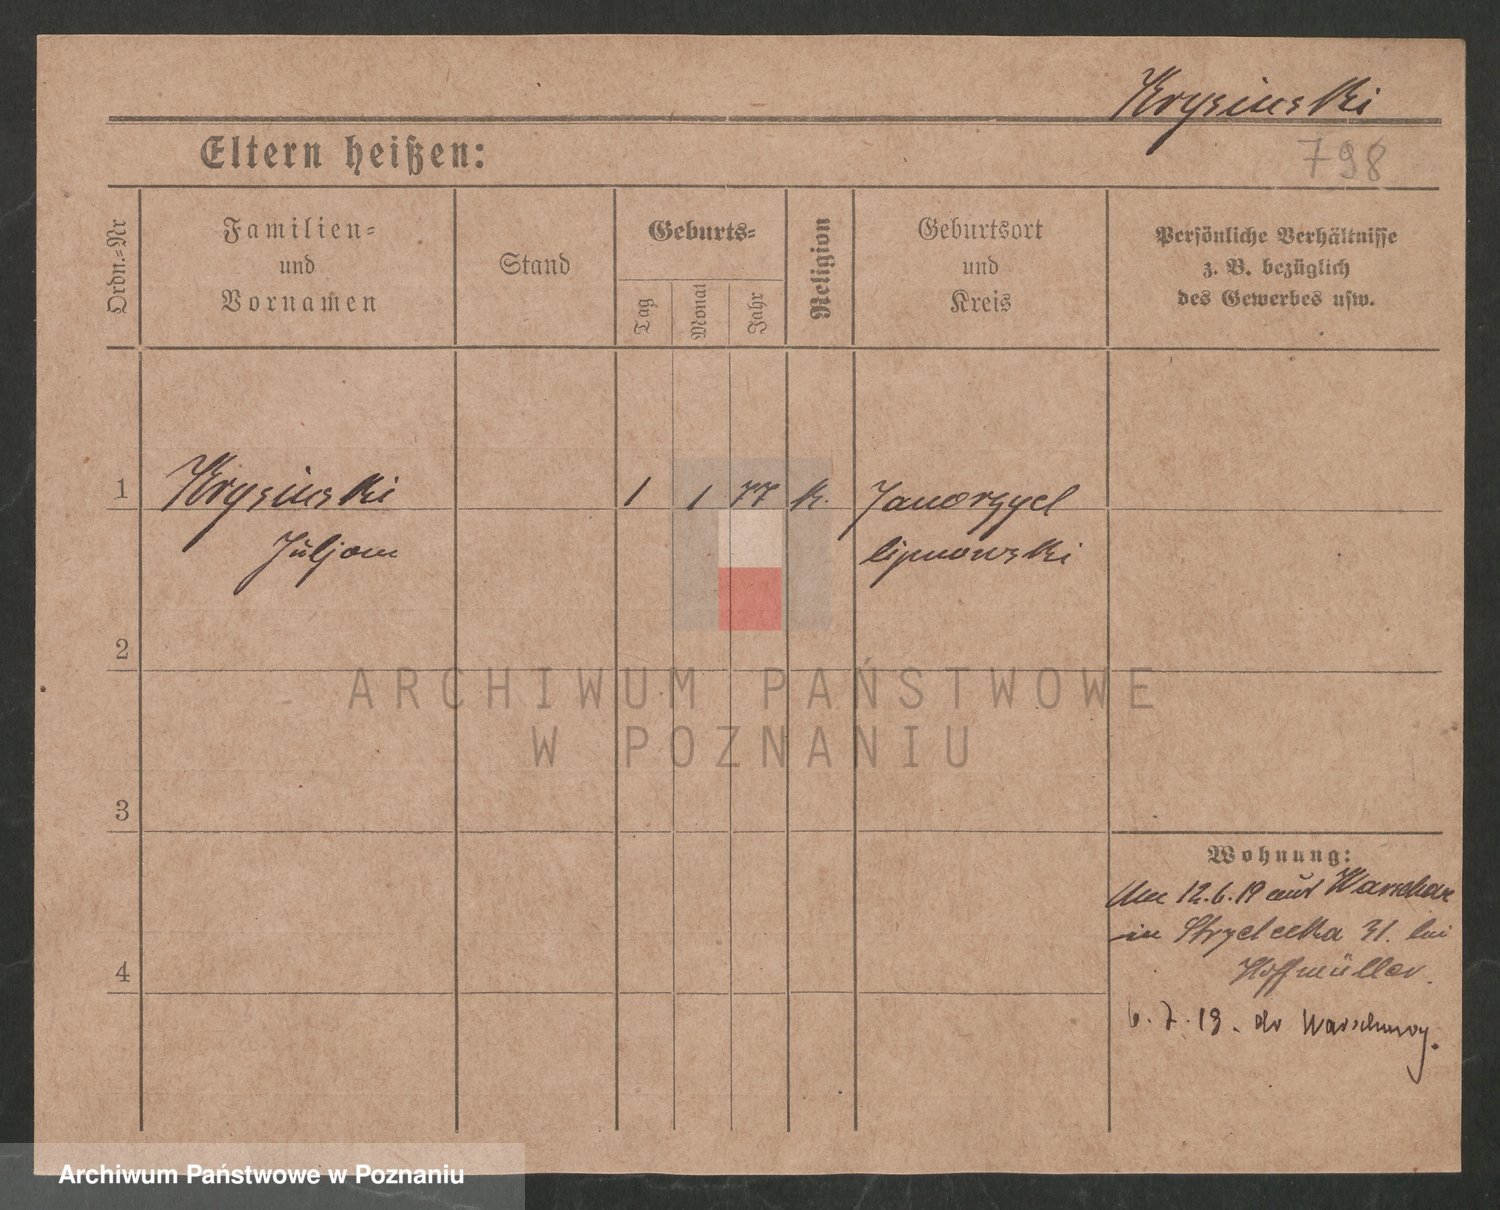 Krysinski
798
Eltern heißen:
Ordn.-Nr
Familien-
und
Vornamen
Stand
Geburts-
Tag
Monat
Jahr
Religion
Geburtsort
und
Kreis
Persönliche Verhältnisse
z. B. bezüglich
des Gewerbes usw.
1 Krysinski 1 1 77 k.
Juljan lipnowski
2
ARCHIWUM PAŃSTWOWE
W POZNANIU
3
Wohnung:
12.6.19 aus Warschau
in Strzelecka 31. bei
Hoffmüller.
4
6.7.19.
Archiwum Państwowe w Poznaniu